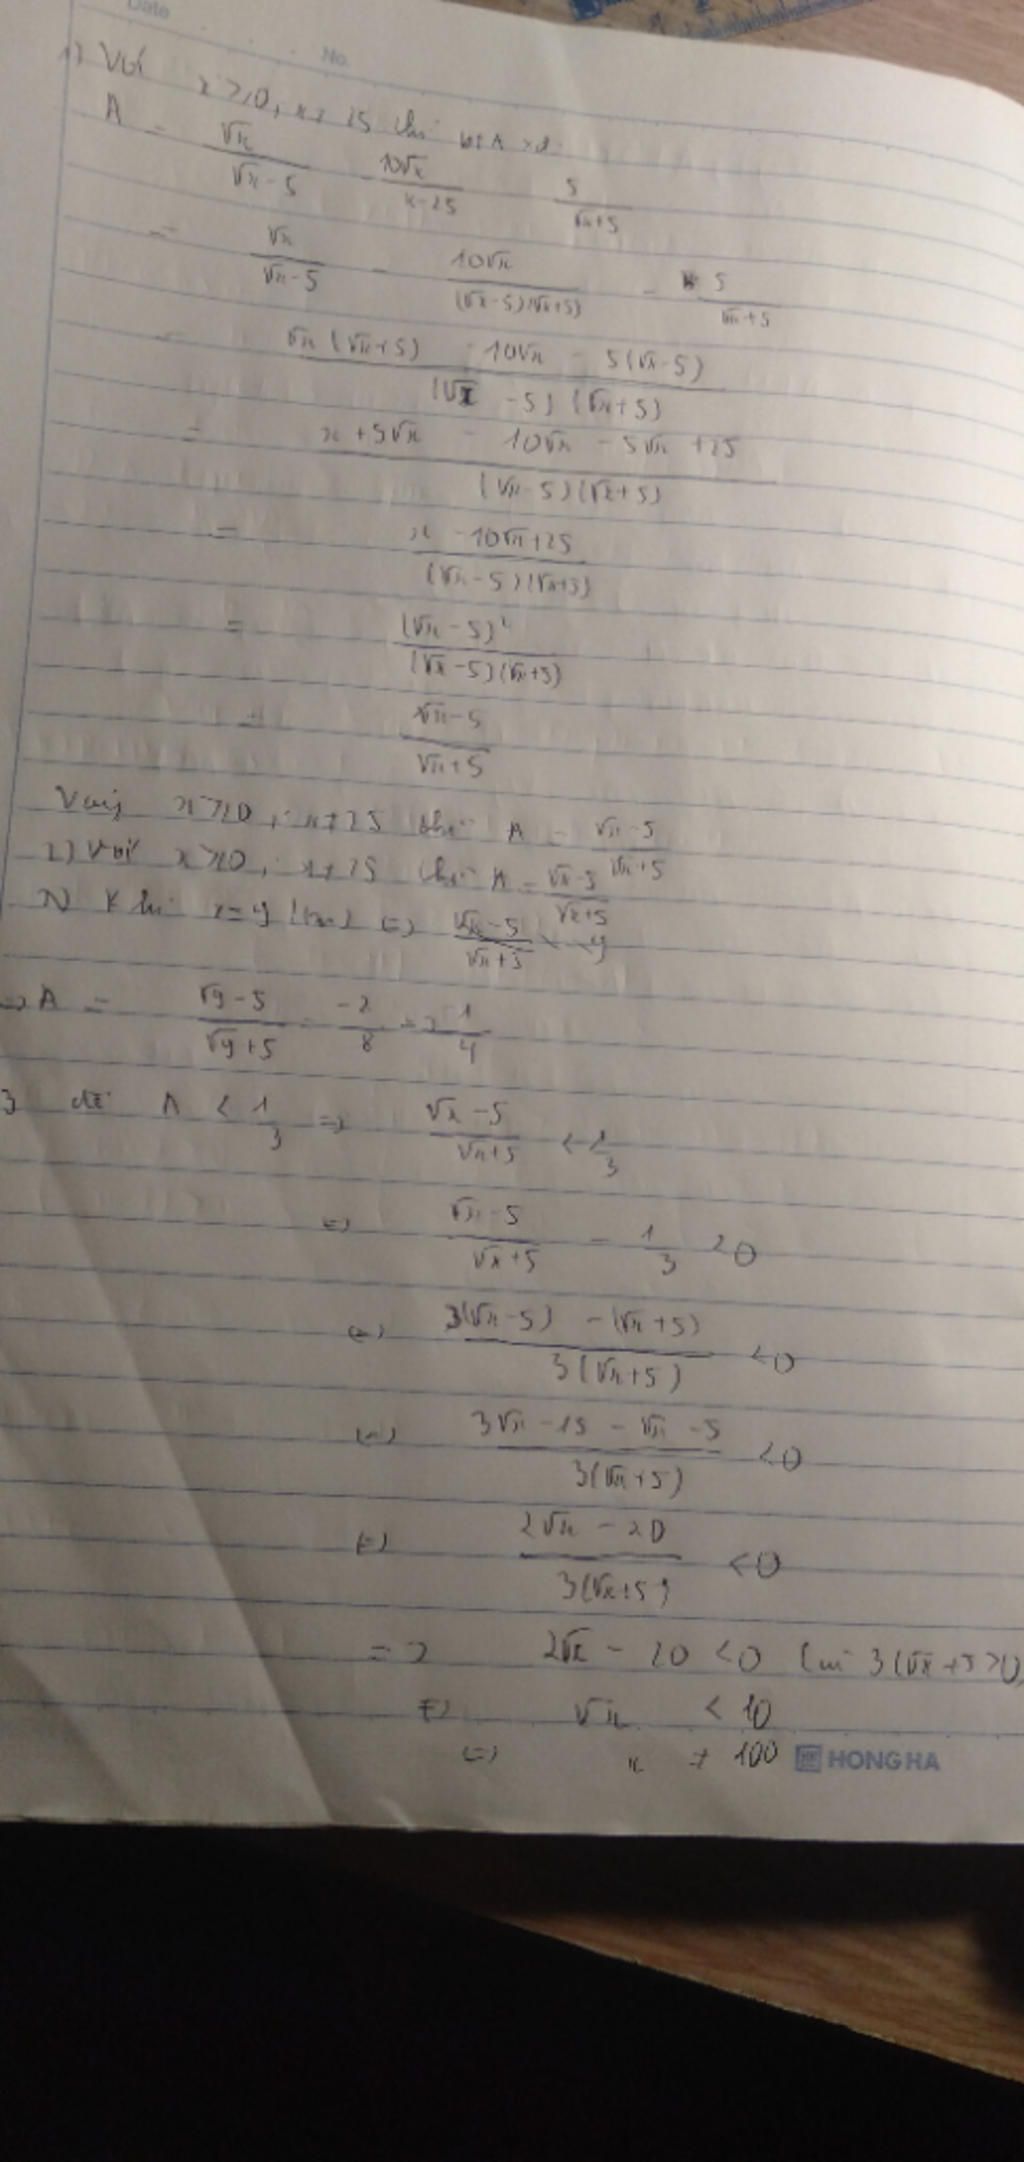 Date No.
1) Với x ≥ 0, x ≠ 25 thì bt A xđ
A = √x/(√x - 5) - 10√x/(x - 25) - 5/(√x + 5)
= √x/(√x - 5) - 10√x/((√x - 5)(√x + 5)) - 5/(√x + 5)
= (√x(√x + 5) - 10√x - 5(√x - 5))/((√x - 5)(√x + 5))
= (x + 5√x - 10√x - 5√x + 25)/((√x - 5)(√x + 5))
= (x - 10√x + 25)/((√x - 5)(√x + 5))
= (√x - 5)²/((√x - 5)(√x + 5))
= (√x - 5)/(√x + 5)
Vậy x ≥ 0, x ≠ 25 thì A = (√x - 5)/(√x + 5)
2) Với x ≥ 0, x ≠ 25 thì A = (√x - 5)/(√x + 5)
Khi x = 9 (tm)
=> A = (√9 - 5)/(√9 + 5) = -2/8 = -1/4
3 để A < 1/3 => (√x - 5)/(√x + 5) < 1/3
<=> (√x - 5)/(√x + 5) - 1/3 < 0
<=> (3(√x - 5) - (√x + 5))/(3(√x + 5)) < 0
<=> (3√x - 15 - √x - 5)/(3(√x + 5)) < 0
<=> (2√x - 20)/(3(√x + 5)) < 0
=> 2√x - 20 < 0 3(√x + 5 > 0)
<=> √x < 10
<=> x 100
HONG HA